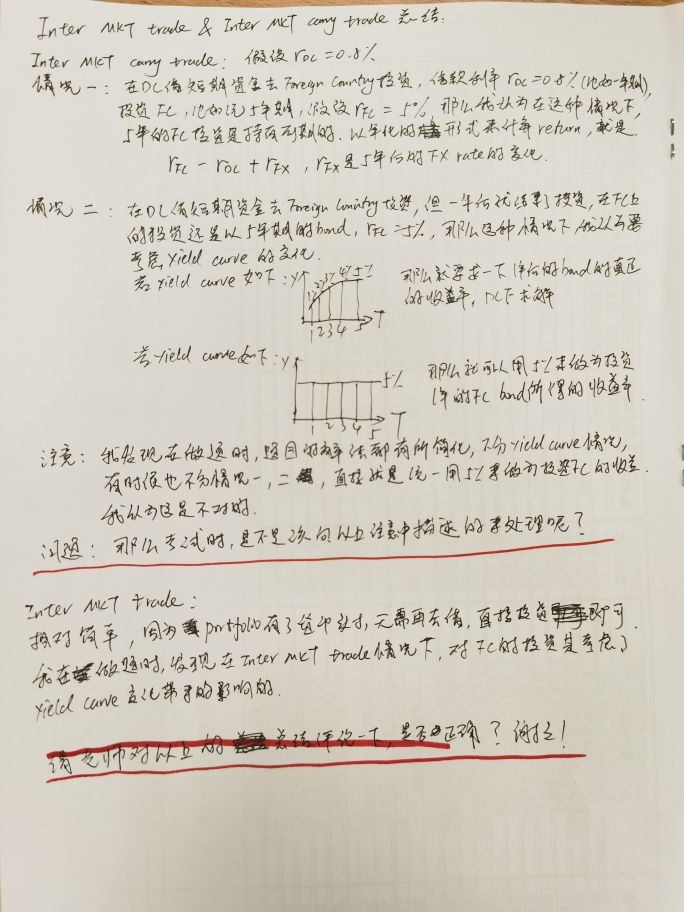 Inter MKT trade & Inter MKT carry trade 总结:
Inter MKT carry trade: 假设 rDC = 0.8%
情况一: 在DC借短期资金去 Foreign Country 投资, 借款利率 rDC = 0.8% (比如一年期),
投资 FC, 比如说5年期, 假设 rFC = 5%, 那么我认为在这种情况下,
5年的FC投资是持有到期的. 以年化的形式来计算 return, 就是
rFC - rDC + rFX, rFX是5年后的FX rate的变化.
情况二: 在DC借短期资金去 Foreign Country 投资, 但一年后就结束了投资, 在FC上
的投资还是以5年期的bond, rFC = 5%, 那么这种情况下 我认为要
考虑 yield curve 的变化.
若 yield curve 如下: Y 1% 2% 3% 4% 5% 1 2 3 4 5 T
那么就要求一下1年后的bond的真正
的收益率, 以下求解
若 yield curve 如下: Y 5% 1 2 3 4 5 T
那么就可以用5%来做为投资
1年的FC bond所得的收益率.
注意: 我发现在做题时, 题目的解法都有所简化, 不分 yield curve 情况,
有时候也不分情况一, 二, 直接就是统一用5%来做为投资FC的收益.
我认为这是不对的.
问题: 那么考试时, 是不是该向以上注意中描述的来处理呢?
Inter MKT trade:
相对简单, 因为 portfolio 有了这本身, 无需再去借, 直接投资即可.
我在做题时, 发现在 Inter MKT trade 情况下, 对FC的投资是考虑了
yield curve 变化带来的影响的.
请老师对以上的总结评论一下, 是否正确? 谢谢!